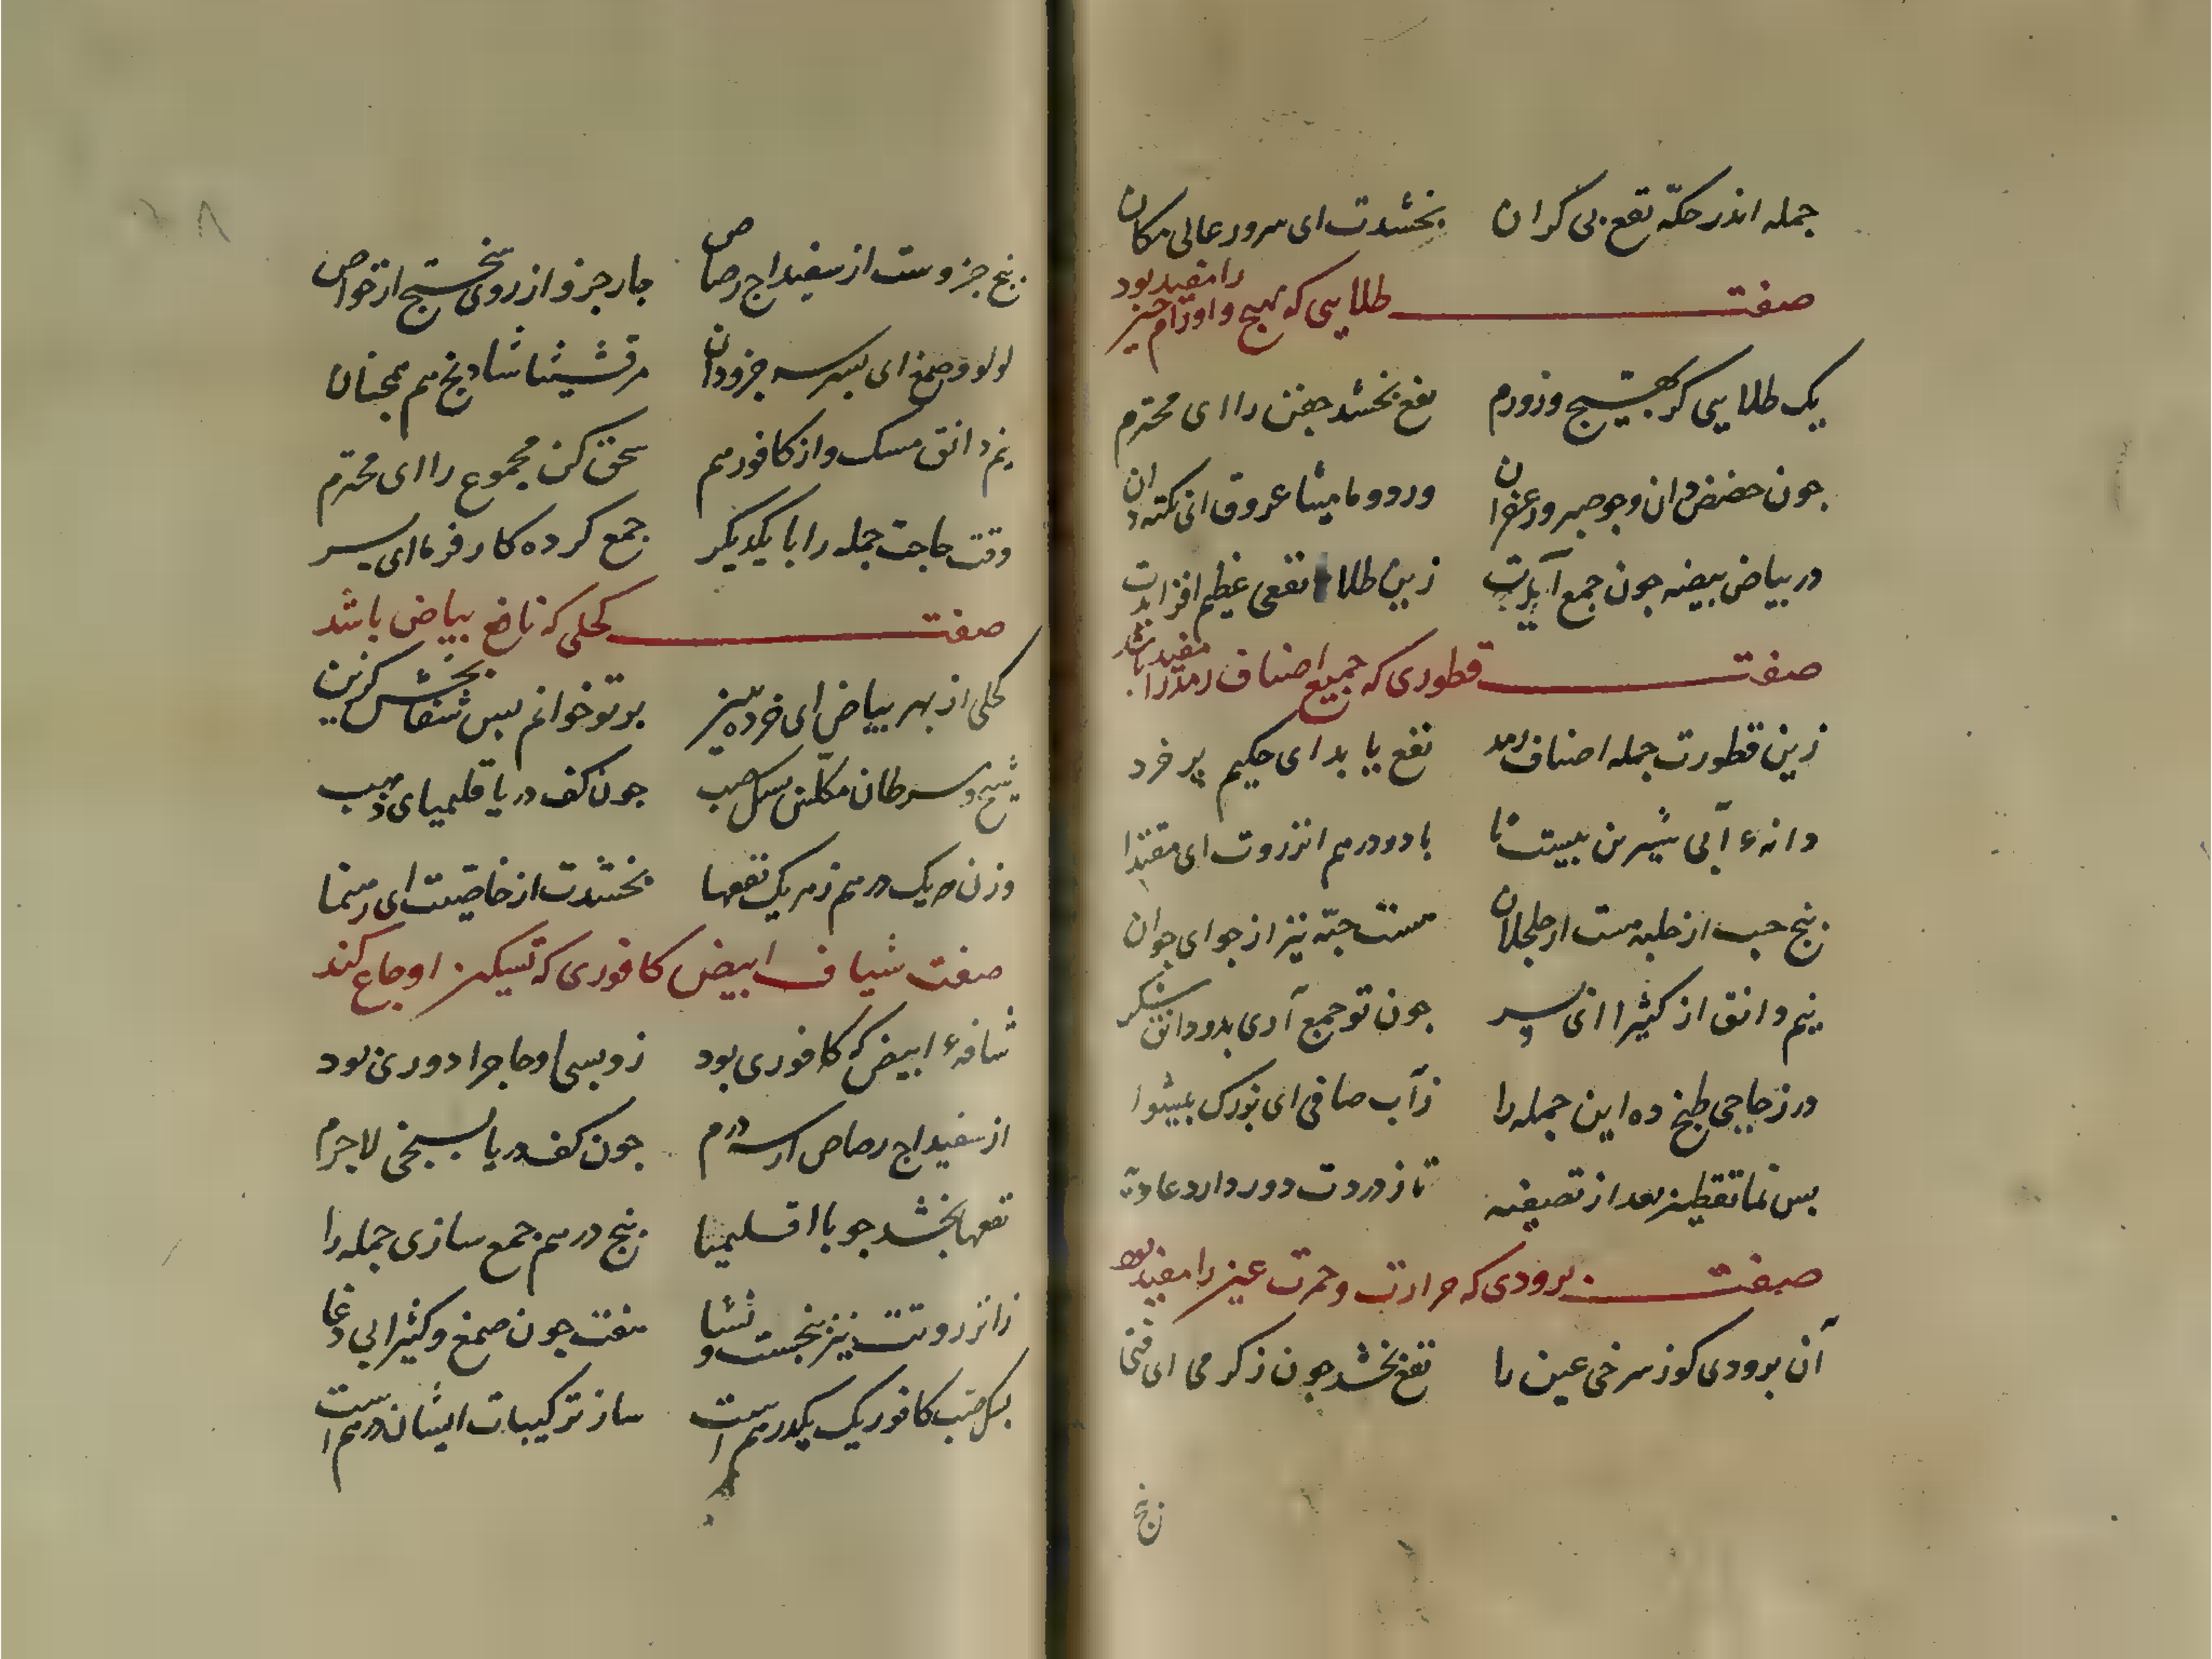 جمله اندر حکّه نفع بی کران بخشدت ای سرور عالی مکان
صفت طلایی که تهیج و اورام جفن را مفید بود
یک طلایی کز تهیج وز ورم نفع بخشد جفن را ای محترم
جون حضض دان وجو صبر وزعفران ورد و مامیثا عروق ای نکته دان
در بیاض بیضه جون جمع آیدت زین طلا نفعی عظیم افزایدت
صفت قطوری که جمیع اصناف رمد را مفید باشد
زین قطورت جمله اصناف رمد نفع یابد ای حکیم پر خرد
دانهٔ آبی شیرین بیست تا با دو درهم انزروت ای مقتدا
پنج حب از حلبه هست از جلجلان هست حبّه نیز از جو ای جوان
نیم دانق از کثیرا ای پسر جون تو جمع آری بدو دانق شکر
در زجاجی طبخ ده این جمله را زآب صافی ای بزرک پیشوا
پس نما تقطیر بعد از تصفیه تا ز دردت دور دارد عادیه
صفت برودی که حرارت و حمرت عین را مفید بود
آن برودی کوز سرخی عین را نفع بخشد جون ز کرمی ای فتی
پنج
پنج جزوست از سفیداج رصاص جار جزو از روی سختج از خواص
لولو و صمغ ای پسر سه جزو دان مرقشیثا شادنج هم همجنان
نیم دانق مسک و از کافور هم سحق کن مجموع را ای محترم
وقت حاجت جمله را با یکدیکر جمع کرده کار فرما ای پسر
صفت کحلی که نافع بیاض باشد
کحلی از بهر بیاض ای خرده بین بر تو خوانم پس شفابخشش کزین
شیح و سرطان مکلس مسک حب جون کف دریا قلیمیای ذهب
وزن هر یک درهم ز هر یک نفعها بخشدت از خاصیت ای رهنما
صفت شیاف ابیض کافوری که تسکین اوجاع کند
شافهٔ ابیض که کافوری بود زو بسی اوجاع را دوری بود
از سفیداج رصاص ار سه درم جون کف دریا بسنجی لاجرم
نفعها بخشد جو با اقلیمیا پنج درهم جمع سازی جمله را
زانزروتت نیز پنجست و نشا هفت جون صمغ و کثیرا بی دغا
لیک حب کافور یک یکدرهم است ساز ترکیبات ایشان درهم است